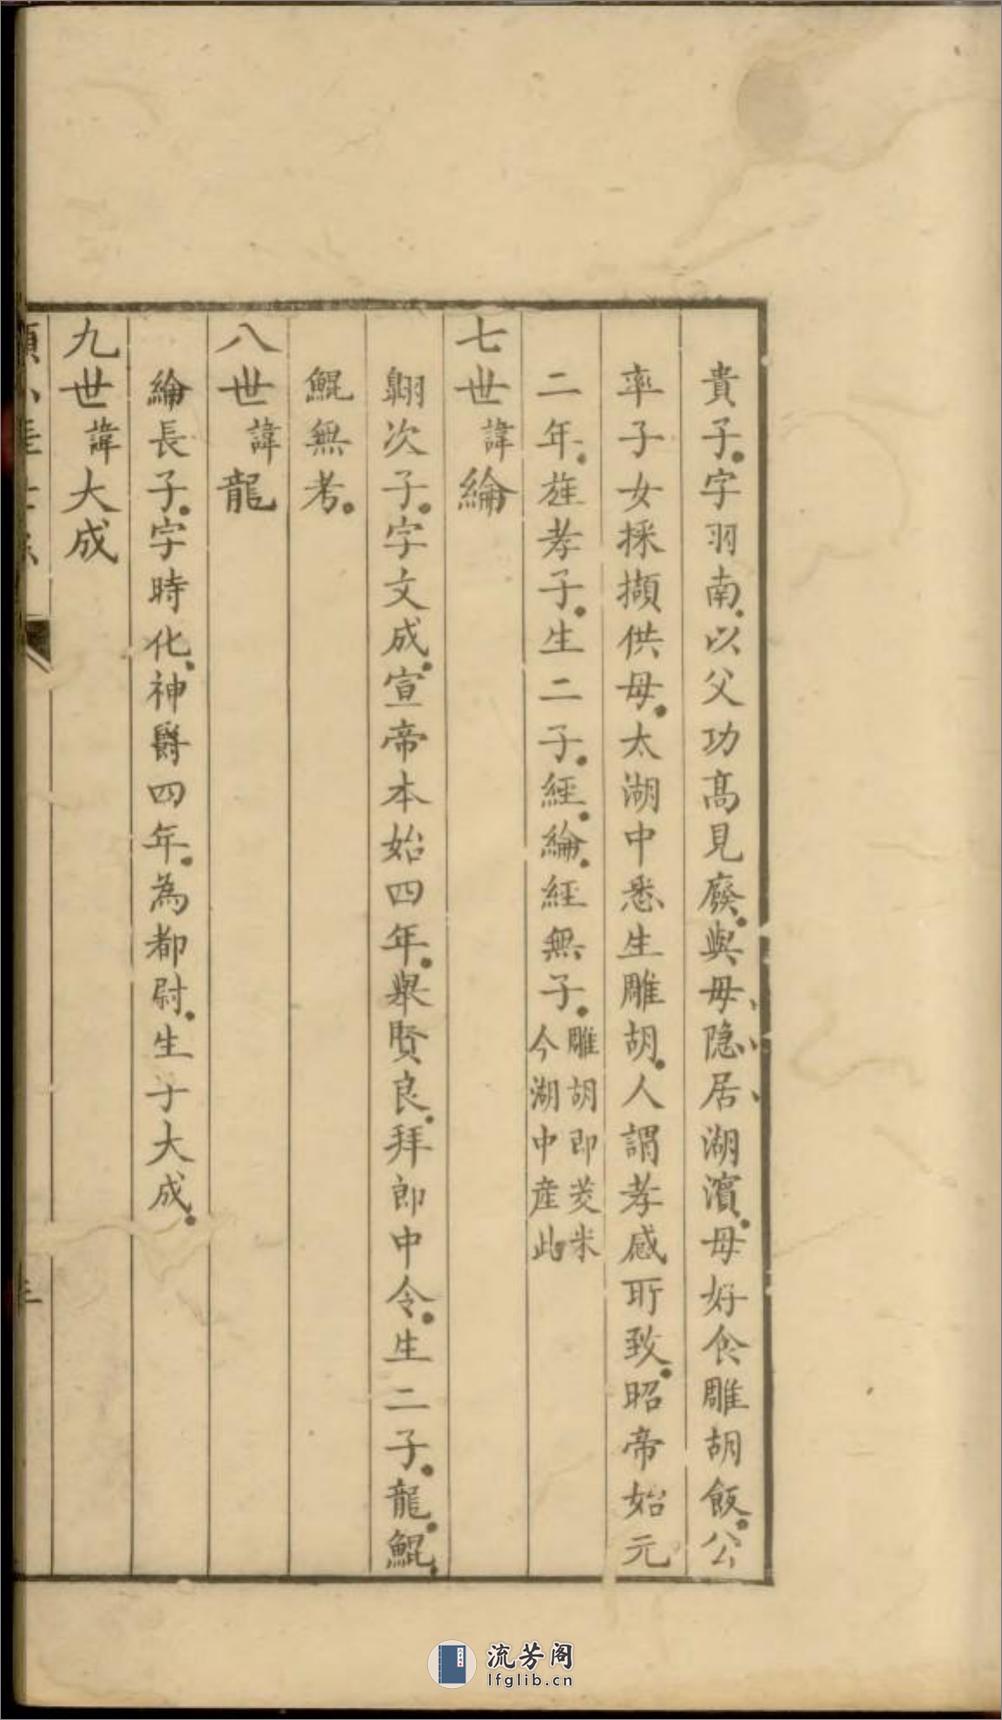 貴子字羽南以父功高見廢與母隱居湖濱母好食雕胡飯公
率子女採擷供母太湖中悉生雕胡人謂孝感所致昭帝始元
二年旌孝子生二子經綸經無子雕胡即茭米
今湖中産此
七世諱綸
翺次子字文成宣帝本始四年舉賢良拜郎中令生二子龍鯤
鯤無考
八世諱龍
綸長子字時化神爵四年為都尉生子大成
九世諱大成
流芳阁
lfglib.cn